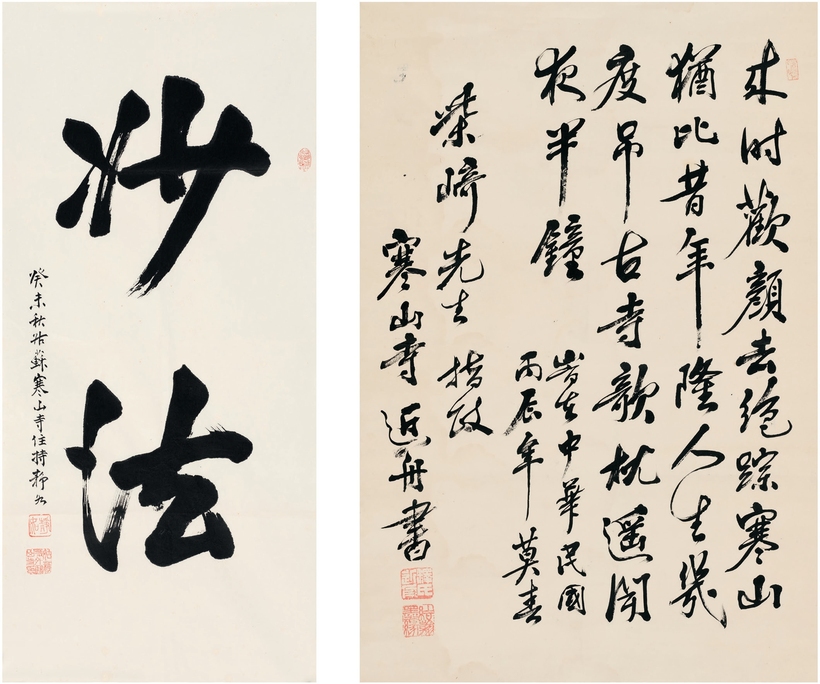 妙法
癸未秋姑蘇寒山寺住持靜如
来时歡顏去绝踪寒山
猶比昔年隆人生幾
度吊古寺欹枕遥闻
夜半鐘
時在中華民國
丙辰年莫春
柴崎先生指政
寒山寺近舟書